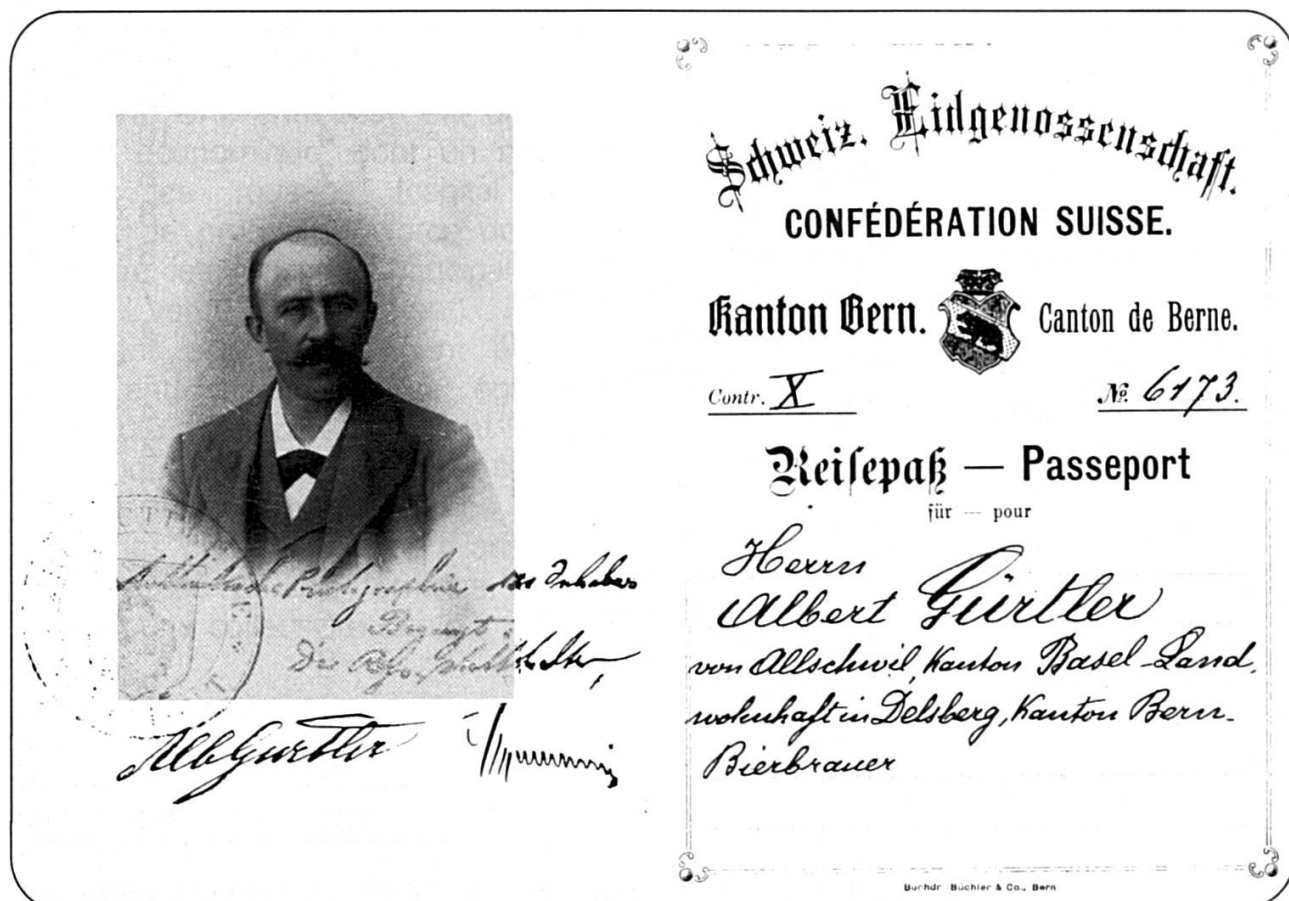 Authentische Photographie des Inhabers
Bezeugt:
Der Reg. Statthalter,
Alb Gürtler
Schweiz. Eidgenossenschaft.
CONFÉDÉRATION SUISSE.
Kanton Bern. Canton de Berne.
Contr. X No. 6173.
Reisepaß — Passeport
für — pour
Herrn
Albert Gürtler
von Allschwil, Kanton Basel-Land,
wohnhaft in Delsberg, Kanton Bern.
Bierbrauer
Buchdr. Büchler & Co., Bern